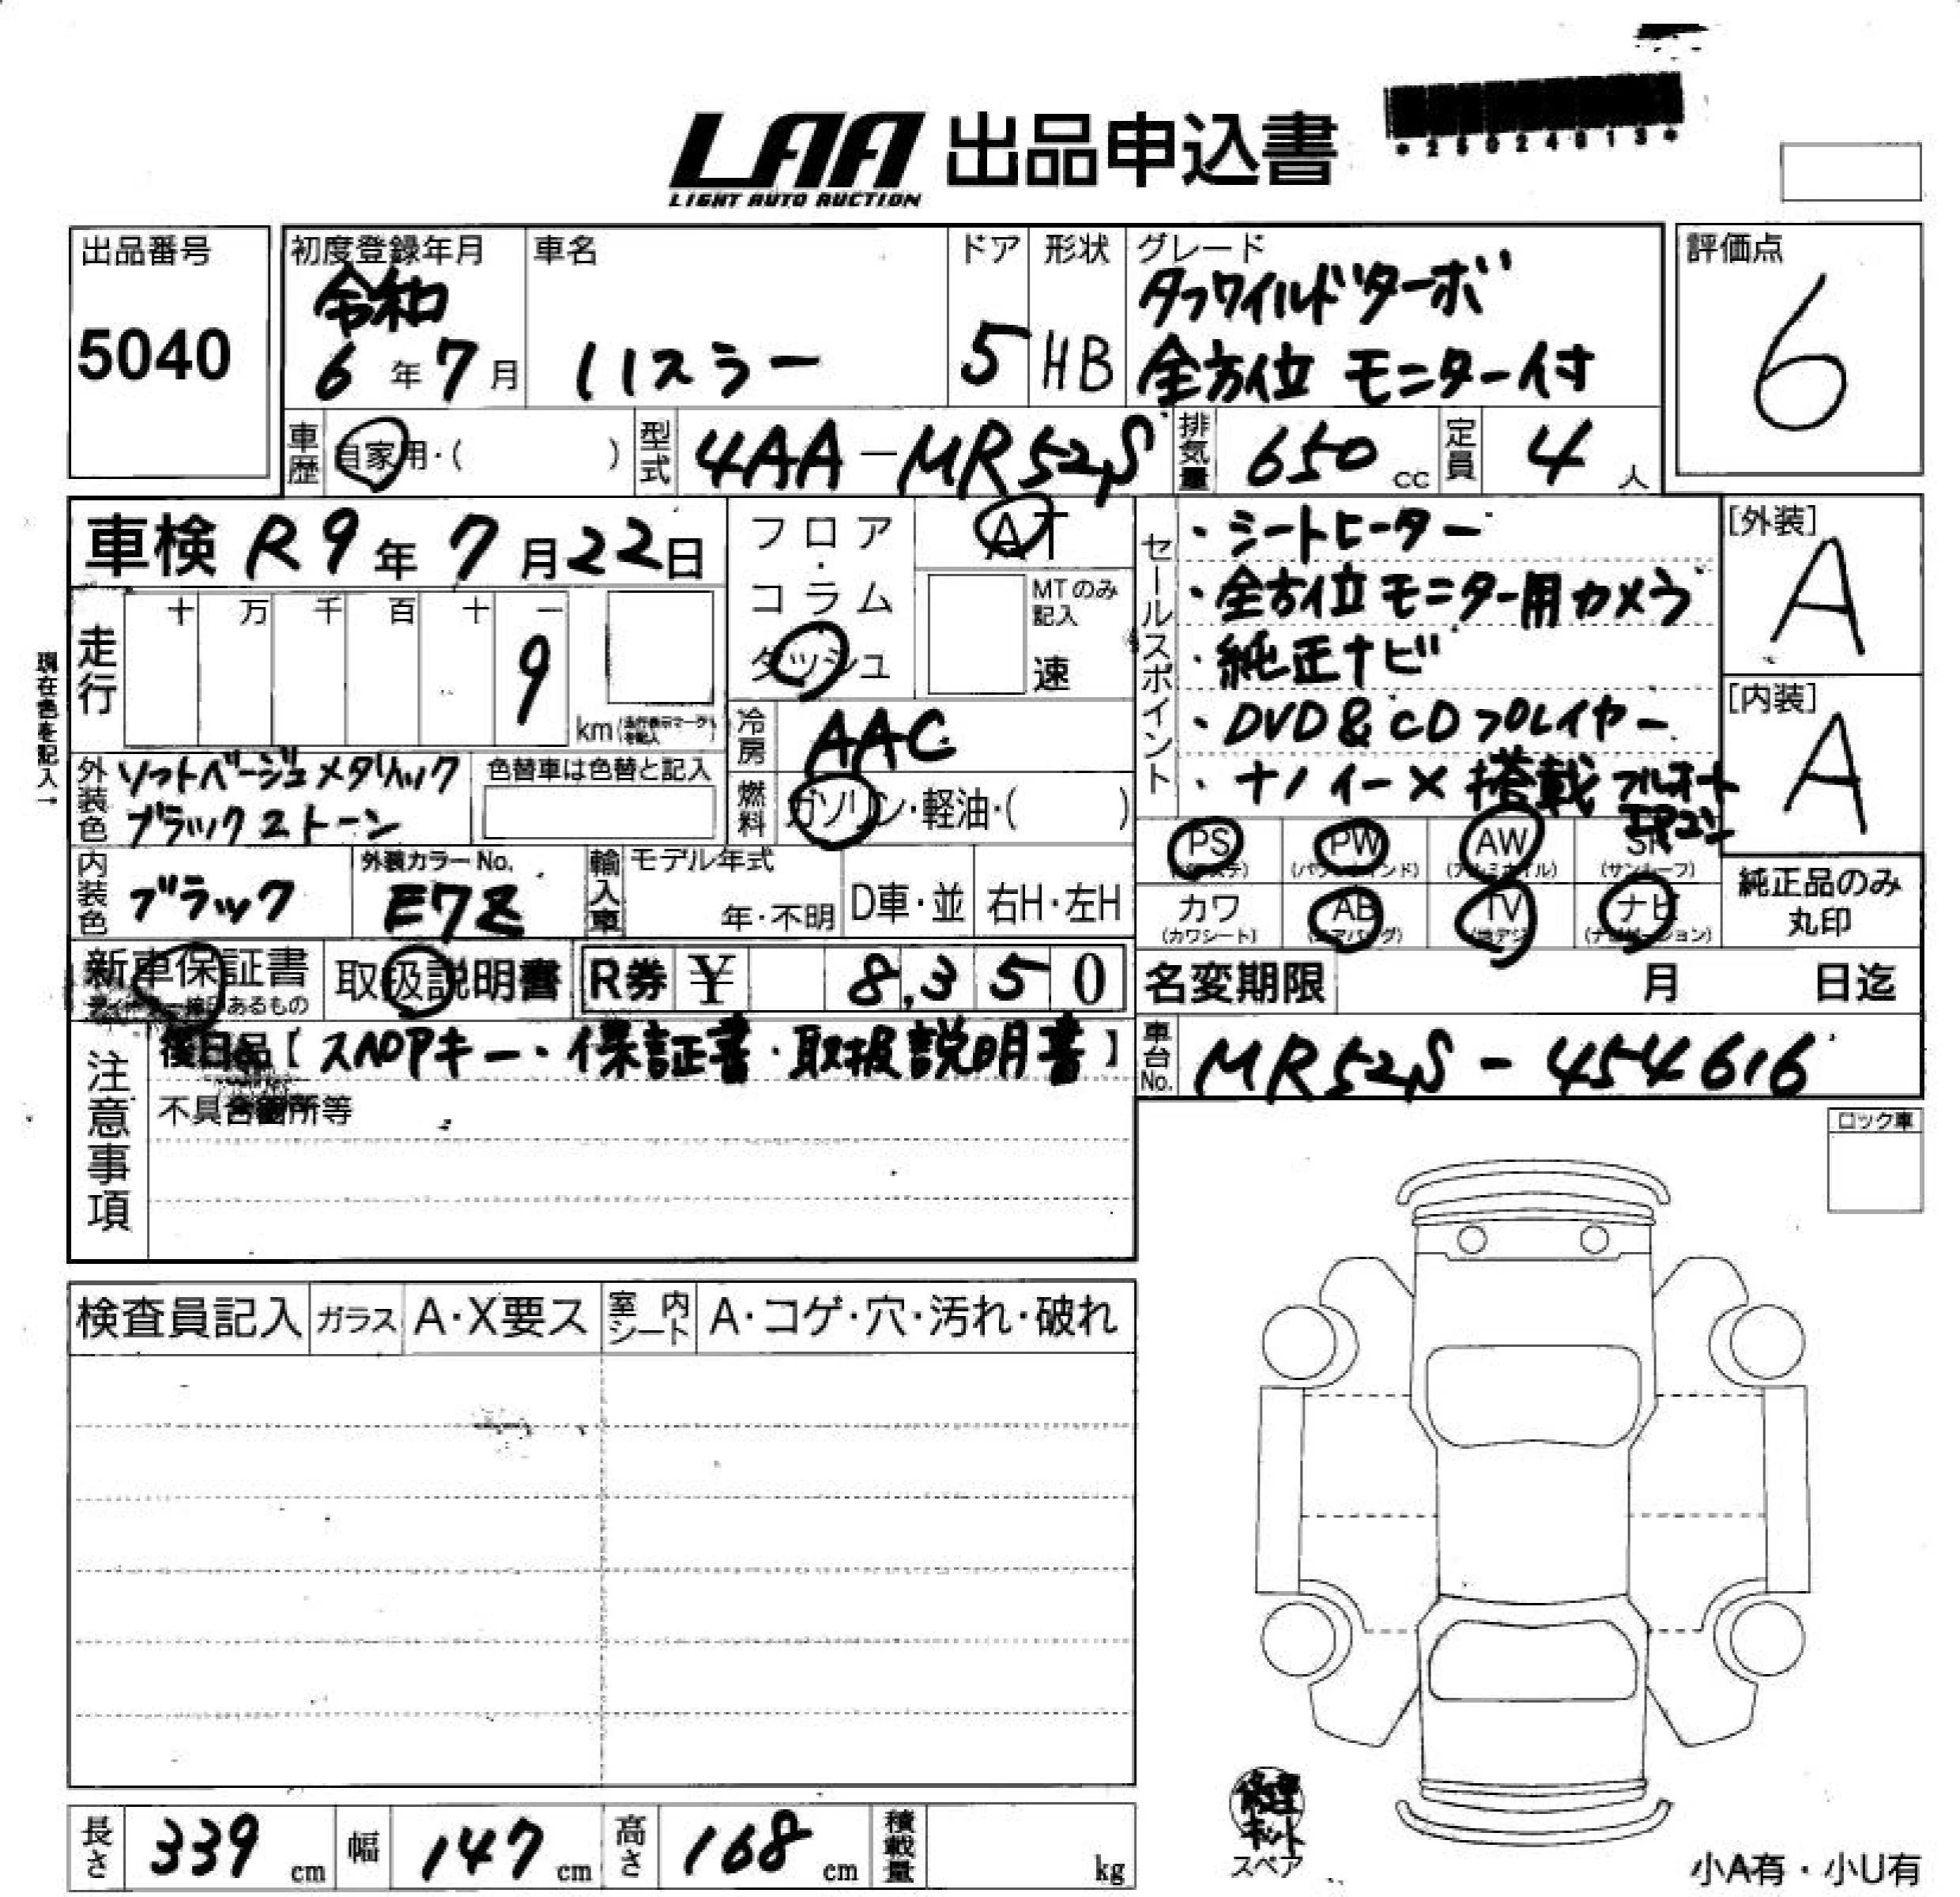 LAA 出品申込書
LIGHT AUTO AUCTION
出品番号
5040
初度登録年月
令和
6年7月
車名
ハスラー
ドア
5
形状
HB
グレード
タフワイルドターボ
全方位モニター付
評価点
6
車歴 自家用・( )
型式 4AA-MR52S
排気量 650 cc
定員 4 人
車検 R9年7月22日
フロア・コラム・ダッシュ
AT
MTのみ記入
速
走行
十 万 千 百 十 一
9 km
現在色を記入→
冷房 AAC
燃料 ガソリン・軽油・( )
外装色 ソフトベージュメタリック
ブラック2トーン
色替車は色替と記入
内装色 ブラック
外装カラーNo.
E7Z
輸入車
モデル年式
年・不明
D車・並
右H・左H
新車保証書
取扱説明書
R券 ¥ 8,350
セールスポイント
・シートヒーター
・全方位モニター用カメラ
・純正ナビ
・DVD&CDプレイヤー
・ナノイーX搭載フルオート
エアコン
[外装]
A
[内装]
A
PS
PW
AW
SR
(サンルーフ)
カワ
(カワシート)
AB
(エアバッグ)
TV
(地デジ)
ナビ
(ナビゲーション)
純正品のみ
丸印
名変期限 月 日迄
車台No. MR52S-454616
注意事項
後日品【スペアキー・保証書・取扱説明書】
不具合箇所等
ロック車
検査員記入
ガラス
A・X要ス
室内シート
A・コゲ・穴・汚れ・破れ
長さ 339 cm
幅 147 cm
高さ 168 cm
積載量 kg
修理
キット
スペア
小A有・小U有